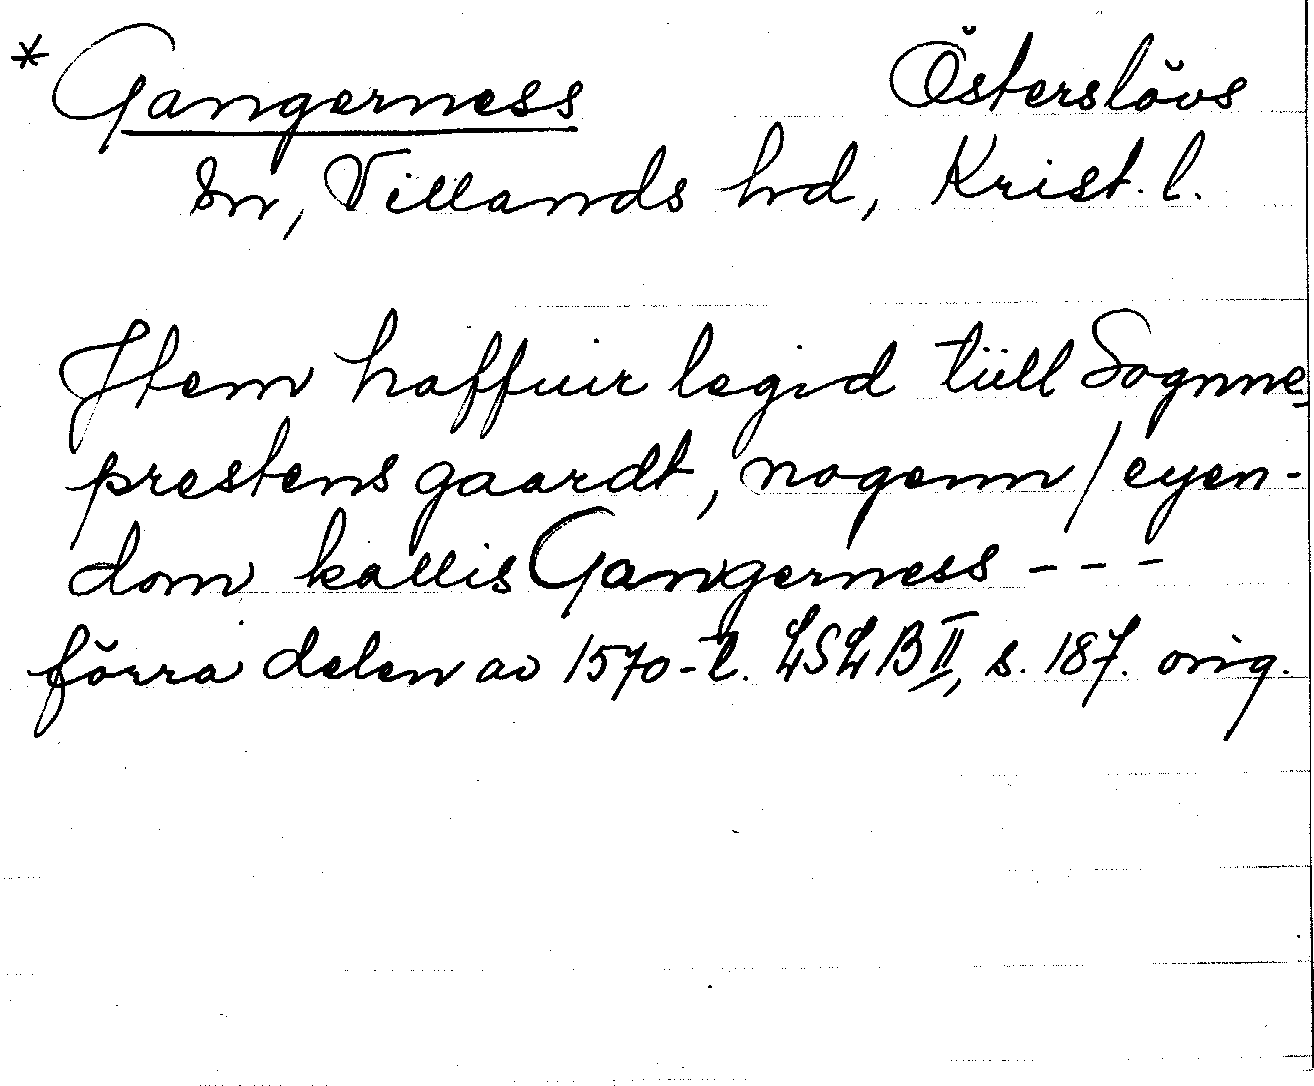 * Gangerness Österslövs
sn, Villands hd, Krist. l.
Jtem haffuir legid tiill Sognne,
prestens gaardt, nogenn / eyen-
dom kallis Gangerness - - -
förra delen av 1570-t. LSLB II, s. 187. orig.